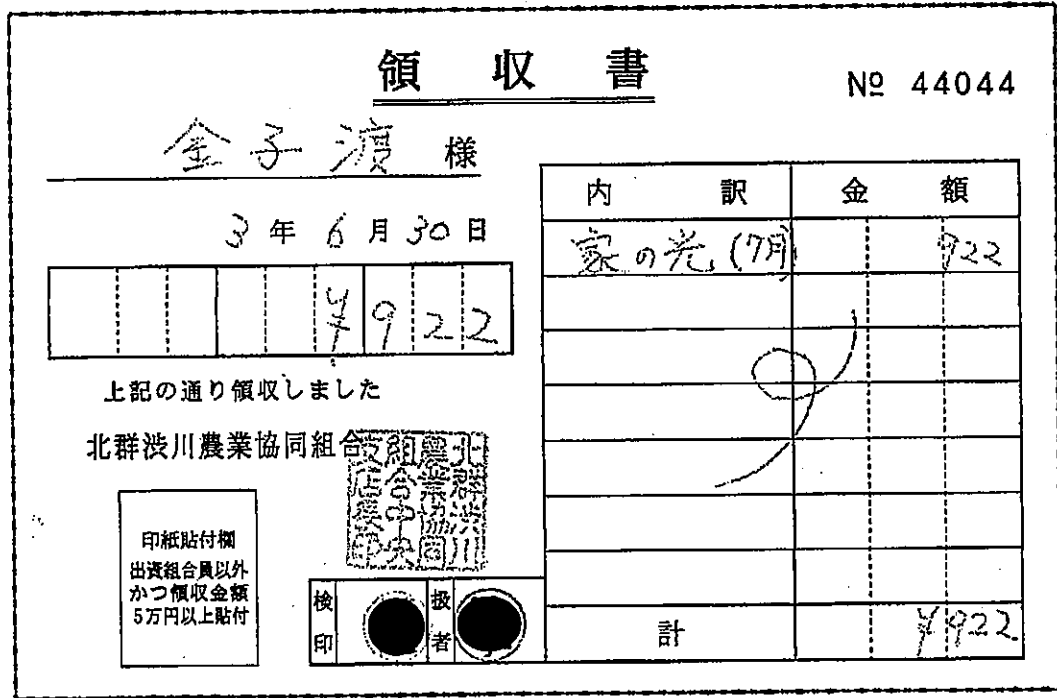 領収書
№ 44044
金子渡 様
3年6月30日
¥922
上記の通り領収しました
北群渋川農業協同組合
北群渋川
農業協同
組合中央
支店長印
印紙貼付欄
出資組合員以外
かつ領収金額
5万円以上貼付
検印
扱者
内訳 金額
家の光(7月) 922
計 ¥922